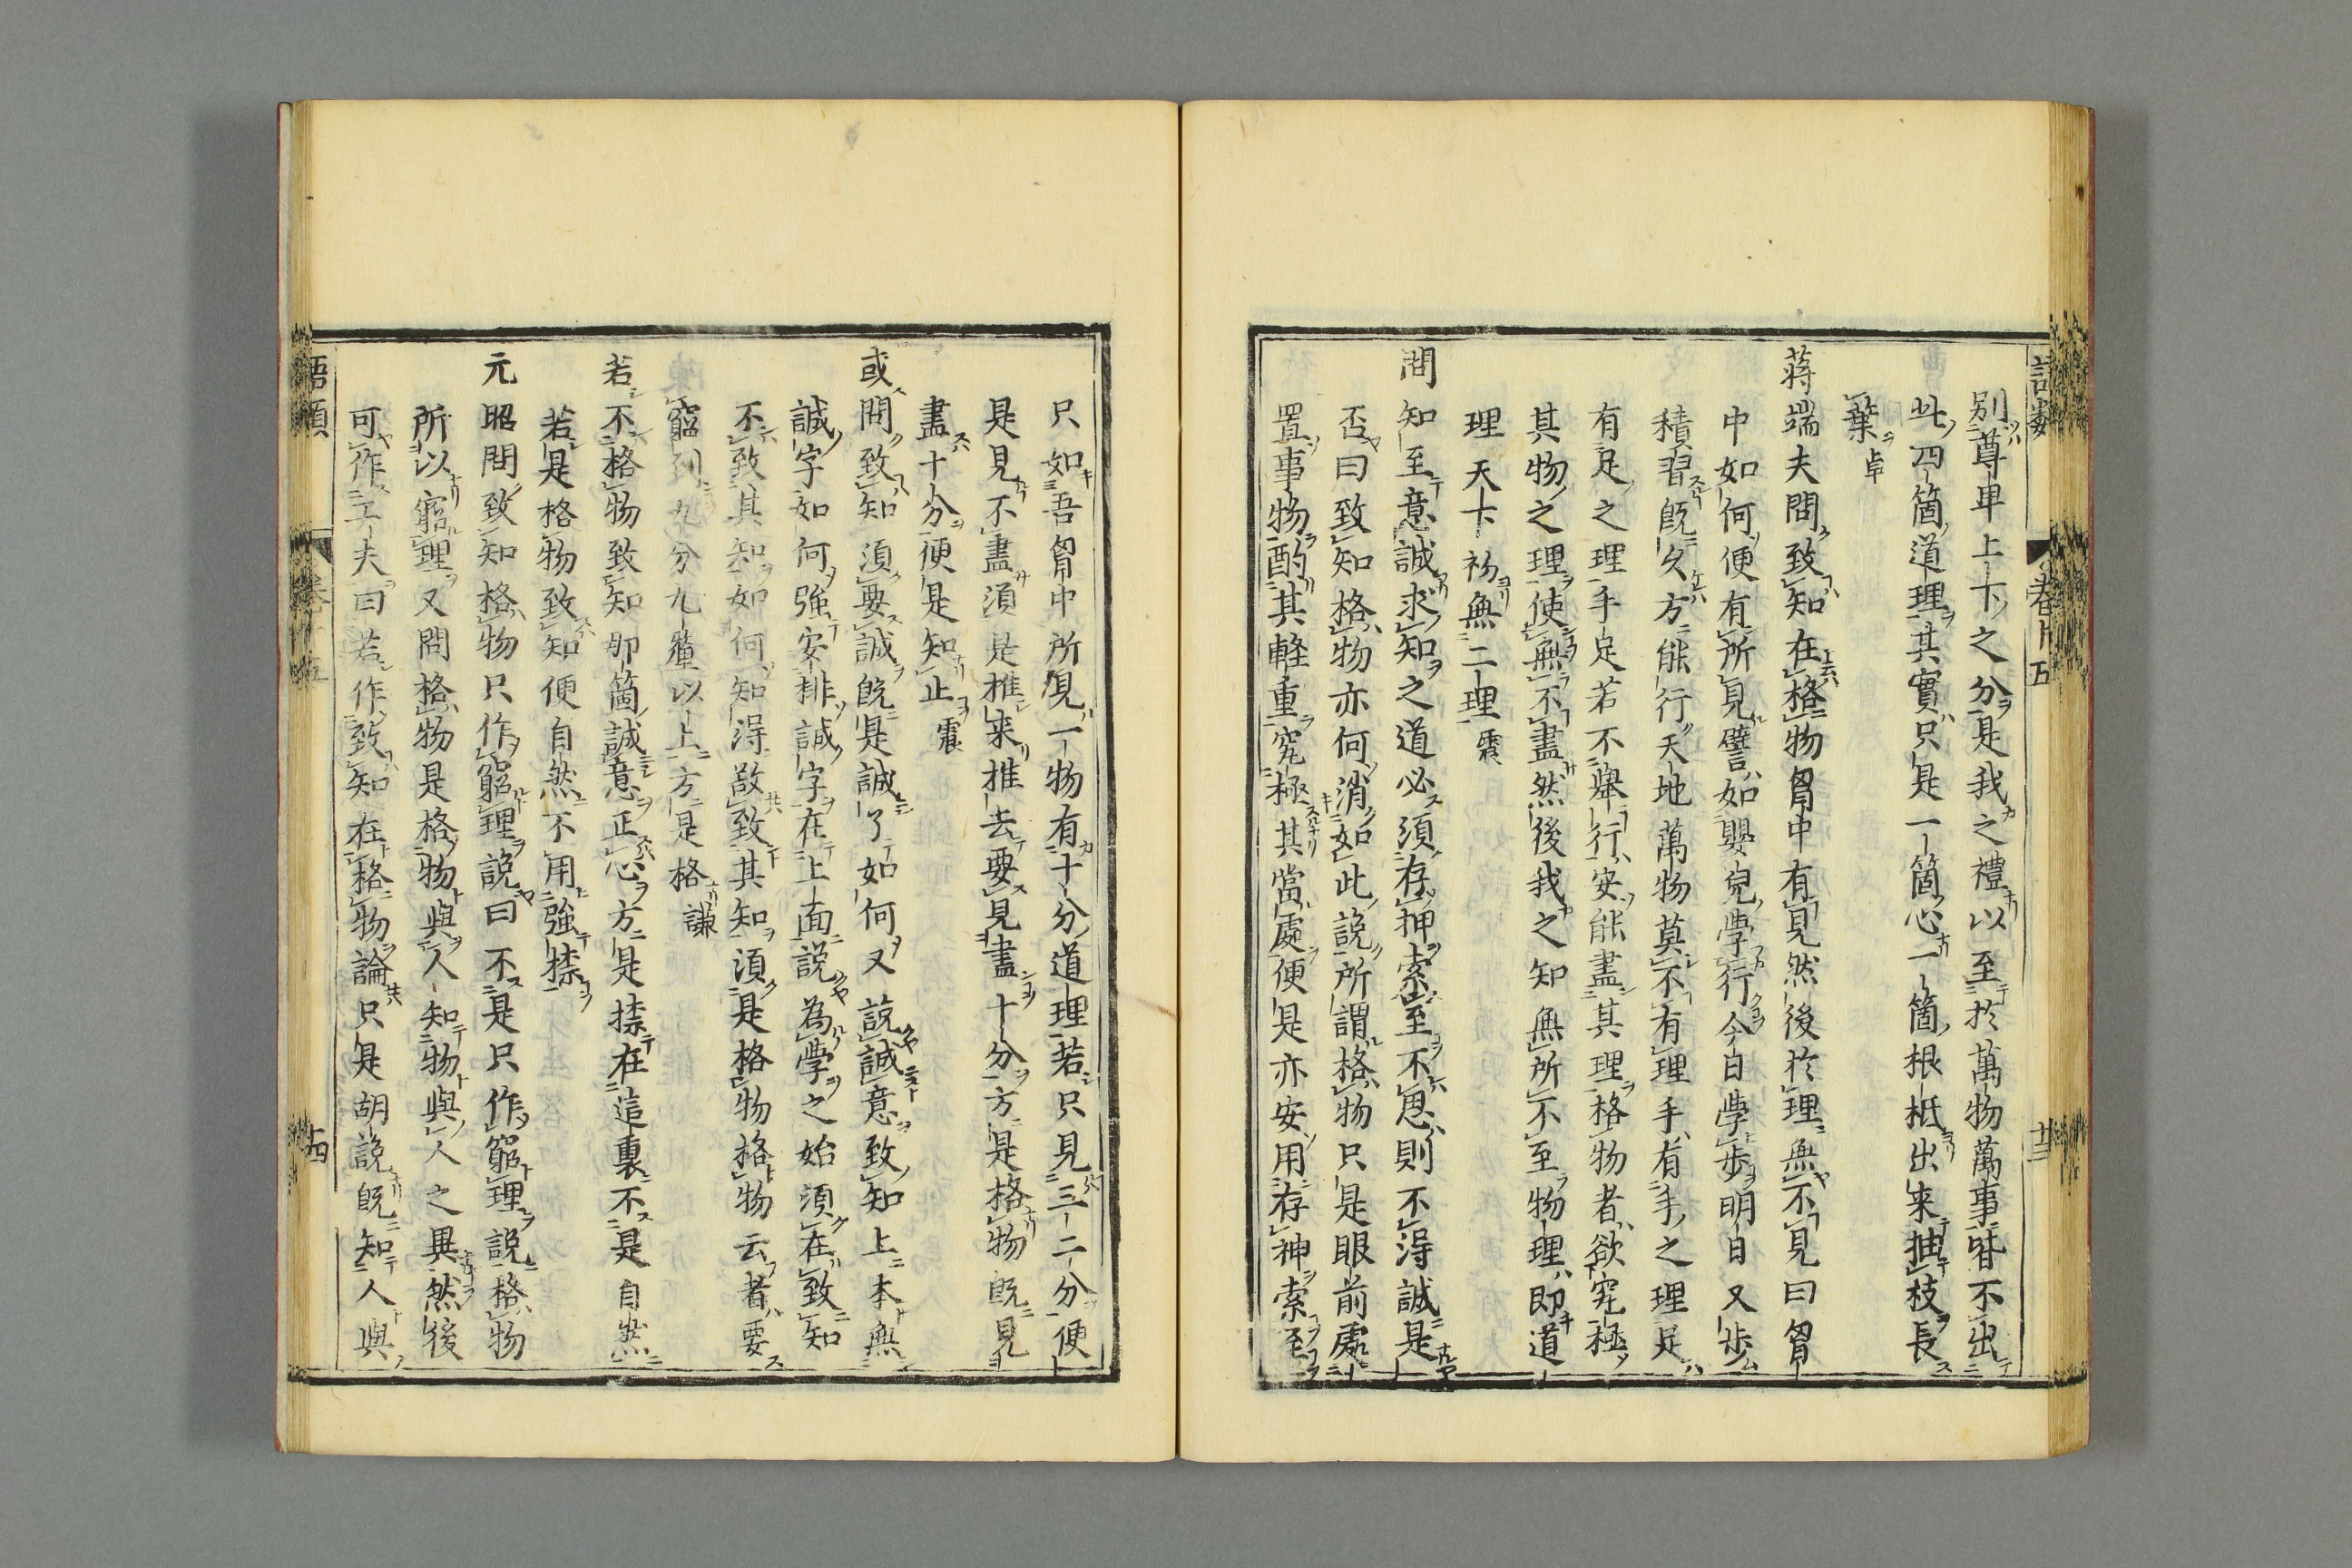 語類 卷十五 廿三
別尊卑上下之分是我之禮以至於萬物萬事皆不出
此四箇道理其實只是一箇心一箇根柢出来抽枝長
葉卓
蒋端夫問致知在格物胷中有見然後於理無不見曰胷
中如何便有所見譬如嬰兒學行今日學歩明日又歩
積習既久方能行天地萬物莫不有理手有手之理足
有足之理手足若不舉行安能盡其理格物者欲究極
其物之理使無不盡然後我之知無所不至物理即道
理天下初無二理震
問知至意誠求知之道必須存神索至不思則不得誠是
否曰致知格物亦何消如此說所謂格物只是眼前處
置事物酌其輕重究極其當處便是亦安用存神索至
只如吾胷中所見一物有十分道理若只見三二分便
是見不盡須是推来推去要見盡十分方是格物既見
盡十分便是知止震
或問致知須要誠既是誠了如何又說誠意致知上本無
誠字如何強安排誠字在上面說為學之始須在致知
不致其知如何知得欲致其知須是格物格物云者要
窮到九分九釐以上方是格謙
若不格物致知那箇誠意正心方是捺在這裏不是自然
若是格物致知便自然不用強捺
元昭問致知格物只作窮理說曰不是只作窮理說格物
所以窮理又問格物是格物與人知物與人之異然後
可作工夫曰若作致知在格物論只是胡說既知人與
語類 卷十五 廿四